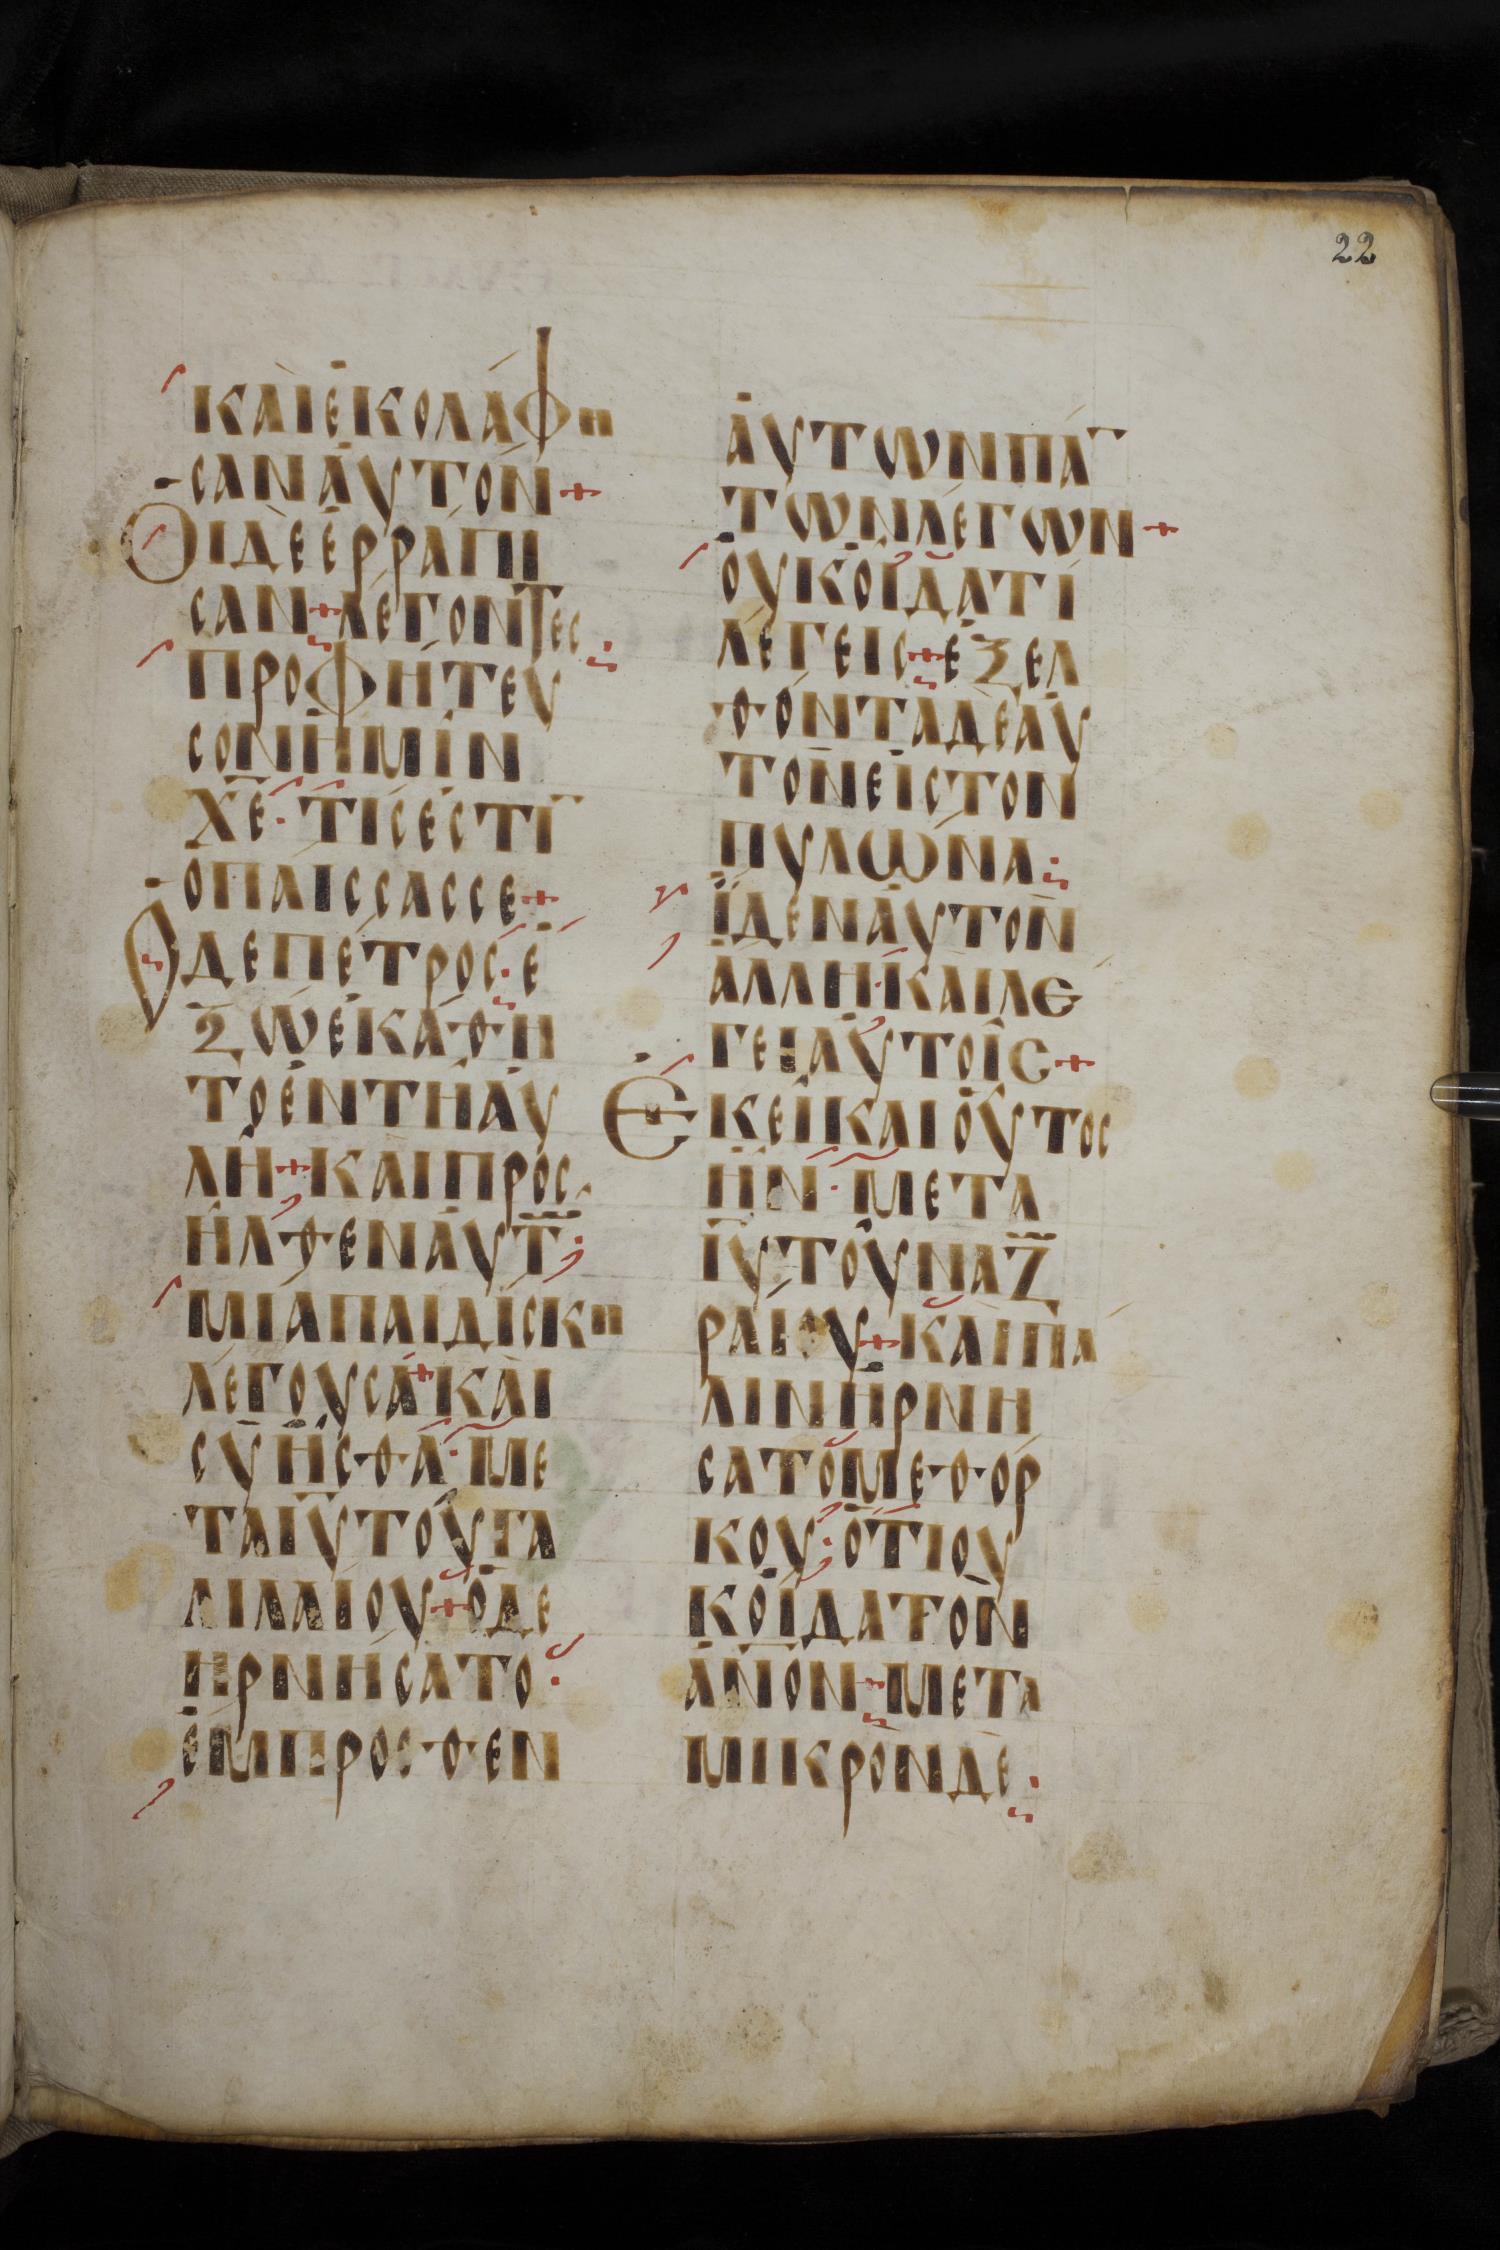 22
ΚΑΙΕΚΟΛΑΦΗ
ΣΑΝΑΥΤΟΝ+
ΟΙΔΕΕΡΡΑΠΙ
ΣΑΝ+ΛΕΓΟΝΤΕΣ
ΠΡΟΦΗΤΕΥ
ΣΟΝΗΜΙΝ
ΧΕ·ΤΙΣΕΣΤΙ̅
ΟΠΑΙΣΣΑΣΣΕ+
ΟΔΕΠΕΤΡΟΣ·Ε
ΞΩΕΚΑΘΗ
ΤΟΕΝΤΗΑΥ
ΛΗ+ΚΑΙΠΡΟΣ
ΗΛΘΕΝΑΥΤ
ΜΙΑΠΑΙΔΙΣΚΗ
ΛΕΓΟΥΣΑ+ΚΑΙ
ΣΥΗΣΘΑ·ΜΕ
ΤΑΙΥΤΟΥΓΑ
ΛΙΛΑΙΟΥ+ΟΔΕ
ΗΡΝΗΣΑΤΟ·
ΕΜΠΡΟΣΘΕΝ
ΑΥΤΩΝΠΑ̅
ΤΩΝΛΕΓΩΝ+
ΟΥΚΟΙΔΑΤΙ
ΛΕΓΕΙΣ+ΕΞΕΛ
ΘΟΝΤΑΔΕΑΥ
ΤΟΝΕΙΣΤΟΝ
ΠΥΛΩΝΑ·
ΪΔΕΝΑΥΤΟΝ
ΑΛΛΗ·ΚΑΙΛΕ
ΓΕΙΑΥΤΟΙΣ+
ΕΚΕΙΚΑΙΟΥΤΟΣ
ΗΝ·ΜΕΤΑ
ΙΥΤΟΥΝΑΖ
ΡΑΙΟΥ+ΚΑΙΠΑ
ΛΙΝΗΡΝΗ
ΣΑΤΟΜΕΘΟΡ
ΚΟΥ·ΟΤΙΟΥ
ΚΟΙΔΑΤΟΝ
ΑΝΟΝ+ΜΕΤΑ
ΜΙΚΡΟΝΔΕ·